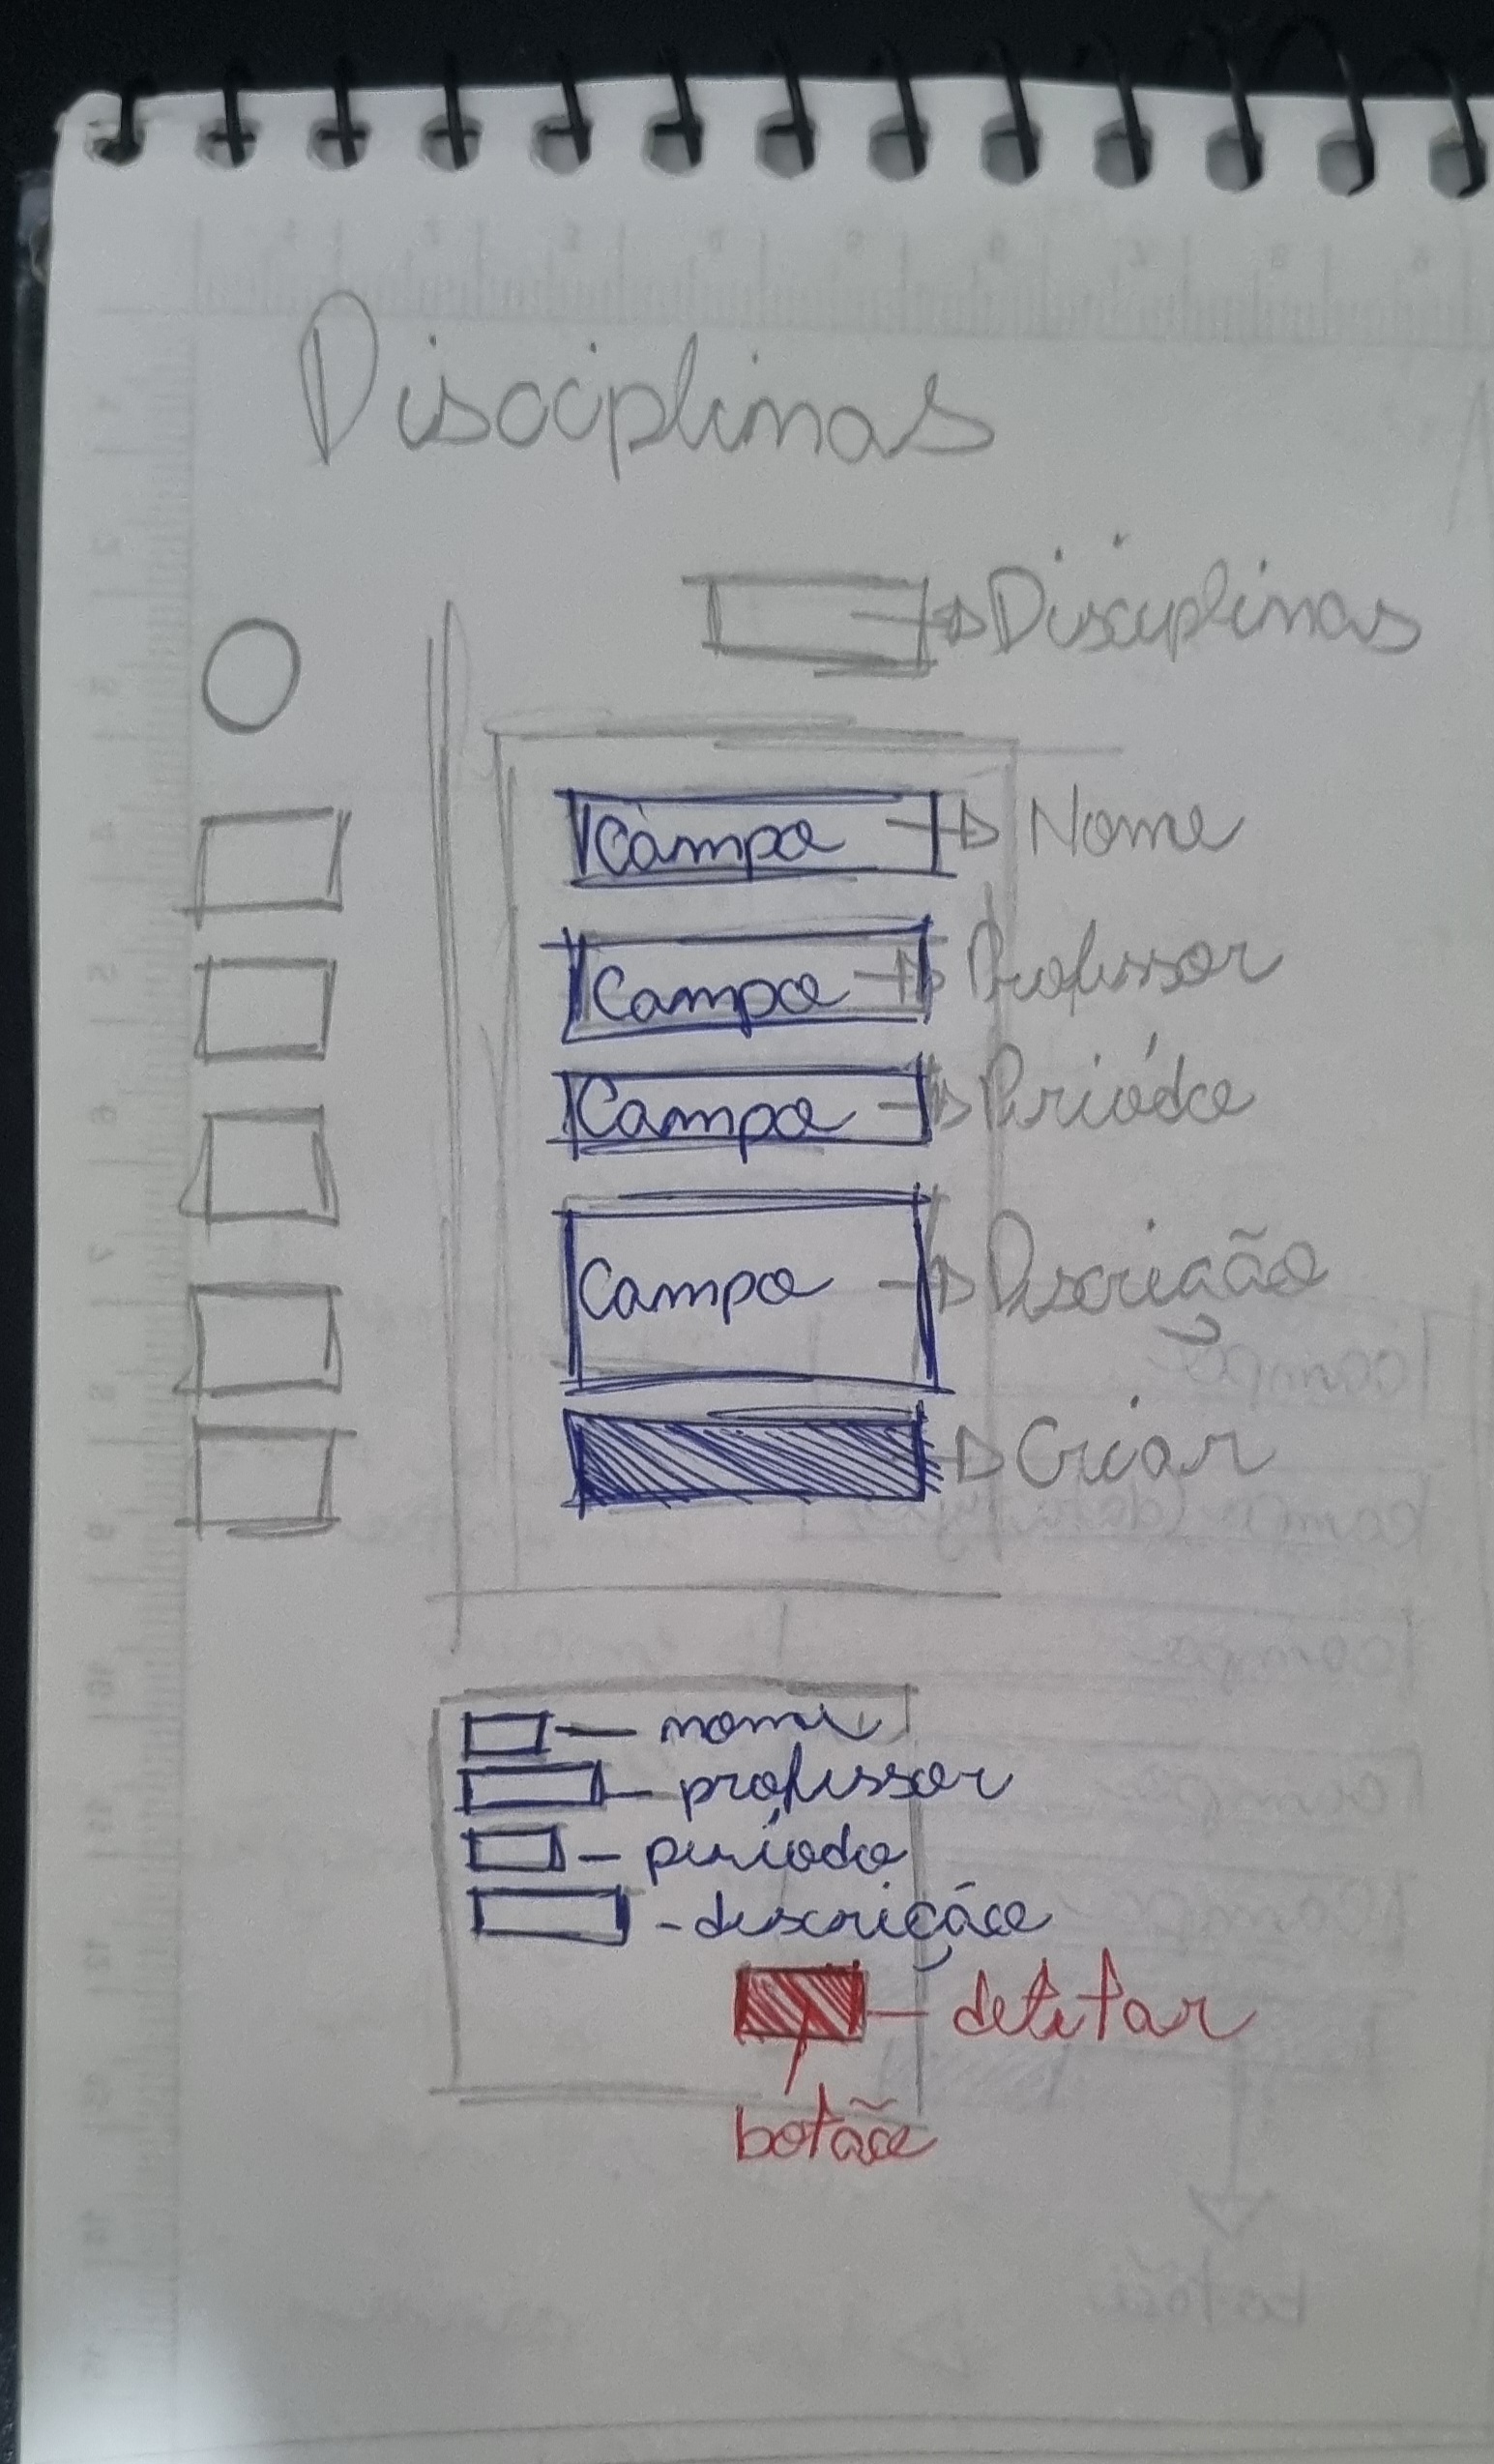 Disciplinas
Disciplinas
Campo Nome
Campo Professor
Campo Periódo
Campo Descrição
Criar
nome
professor
período
descrição
deletar
botão